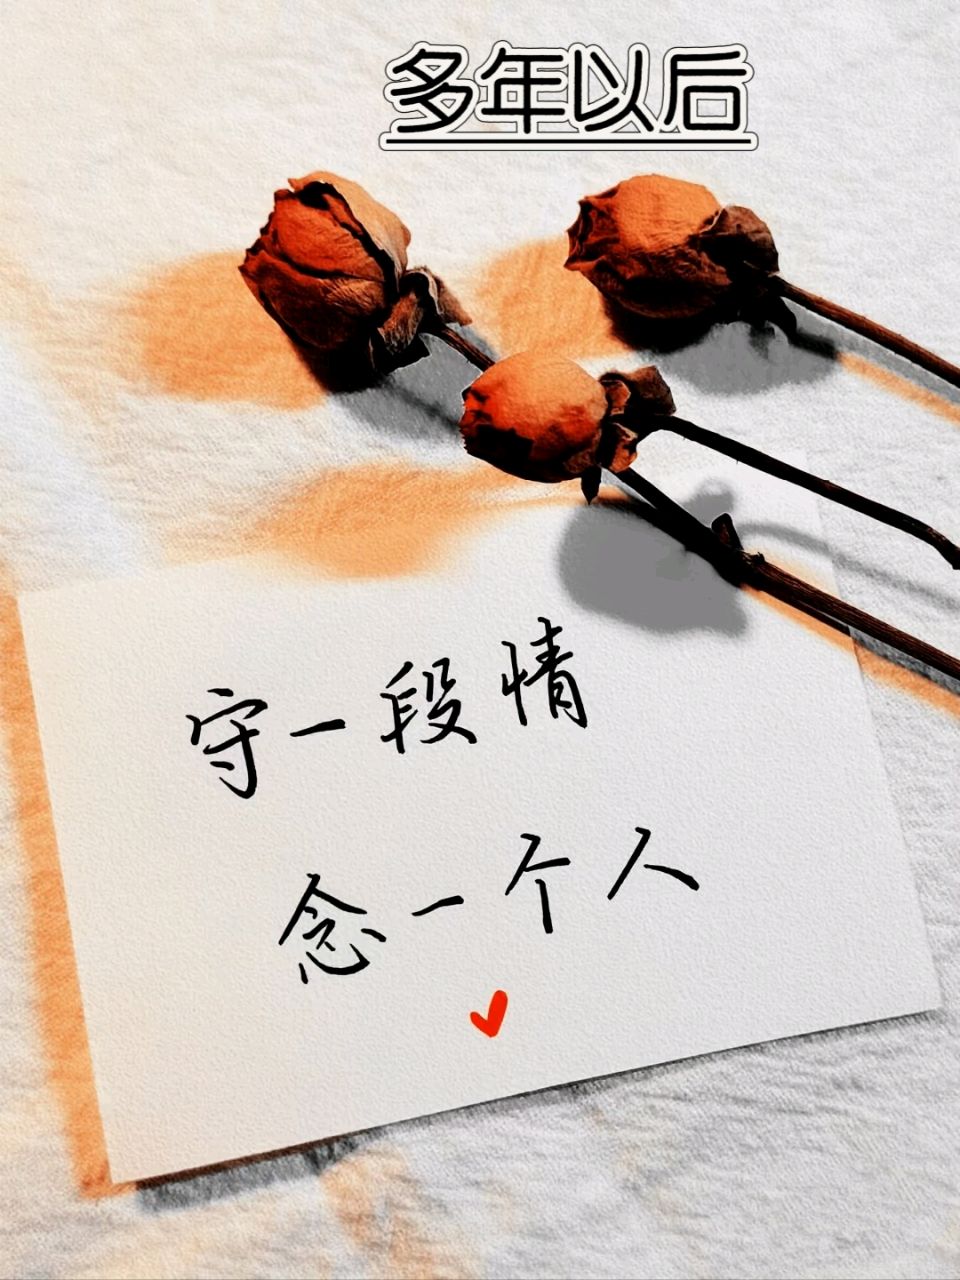 多年以后
守一段情
念一个人